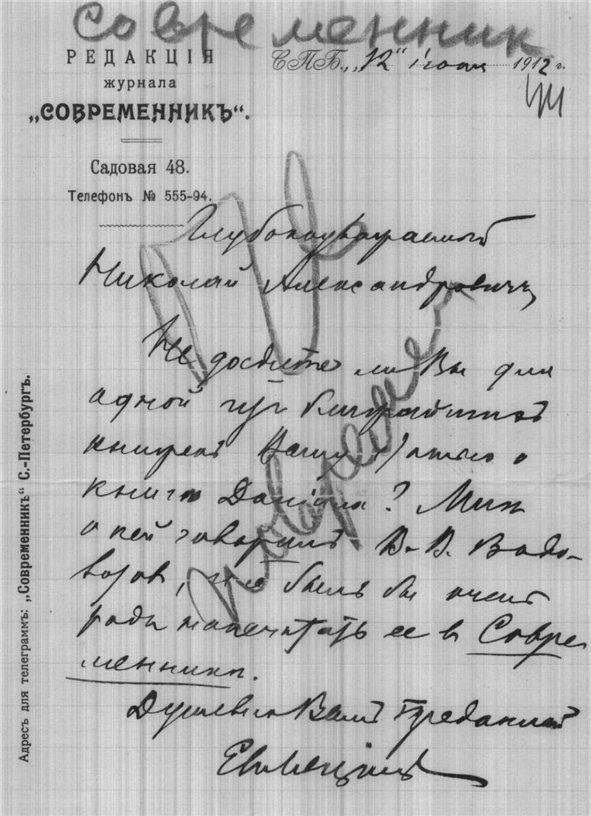 Современник
РЕДАКЦІЯ
журнала
„СОВРЕМЕННИКЪ“.
Садовая 48.
Телефонъ № 555-94.
СПБ. „12“ 1912 г.
Глубокоуважаемый
Николай Александровичъ,
Не дадите ли Вы для
одной изъ ближайшихъ
книжекъ Вашу статью о
книгѣ Даніила? Мнѣ
о ней говорилъ В. В. Водо-
возов, и я былъ бы очень
радъ напечатать ее в Совре-
менникѣ.
Душевно Вамъ преданный
Адресъ для телеграммъ: „Современникъ“ С.-Петербургъ.